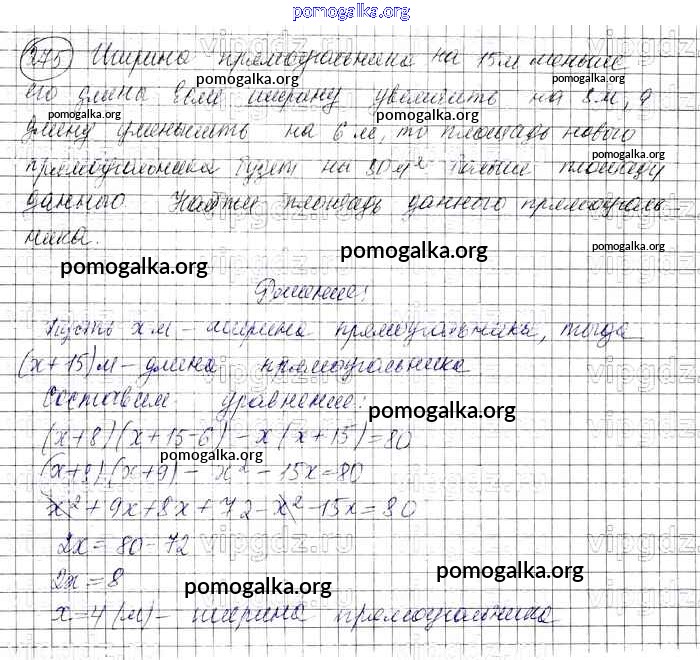 pomogalka.org
375 Ширина прямоугольника на 15м меньше
pomogalka.org
его длины Если ширину увеличить на 8м, а
pomogalka.org
длину уменьшить на 6м, то площадь нового
прямоугольника будет на 80м² больше площади
pomogalka.org
данного. Найти площадь данного прямоуголь-
pomogalka.org
ника.
pomogalka.org
pomogalka.org
pomogalka.org
Решение:
Пусть x м - ширина прямоугольника, тогда
(x+15)м - длина прямоугольника
Составим уравнение:
pomogalka.org
(x+8)(x+15-6) - x(x+15)=80
pomogalka.org
(x+8)(x+9) - x² - 15x=80
x² + 9x + 8x + 72 - x² - 15x = 80
2x = 80-72
2x = 8
pomogalka.org
pomogalka.org
x = 4 (м) - ширина прямоугольника